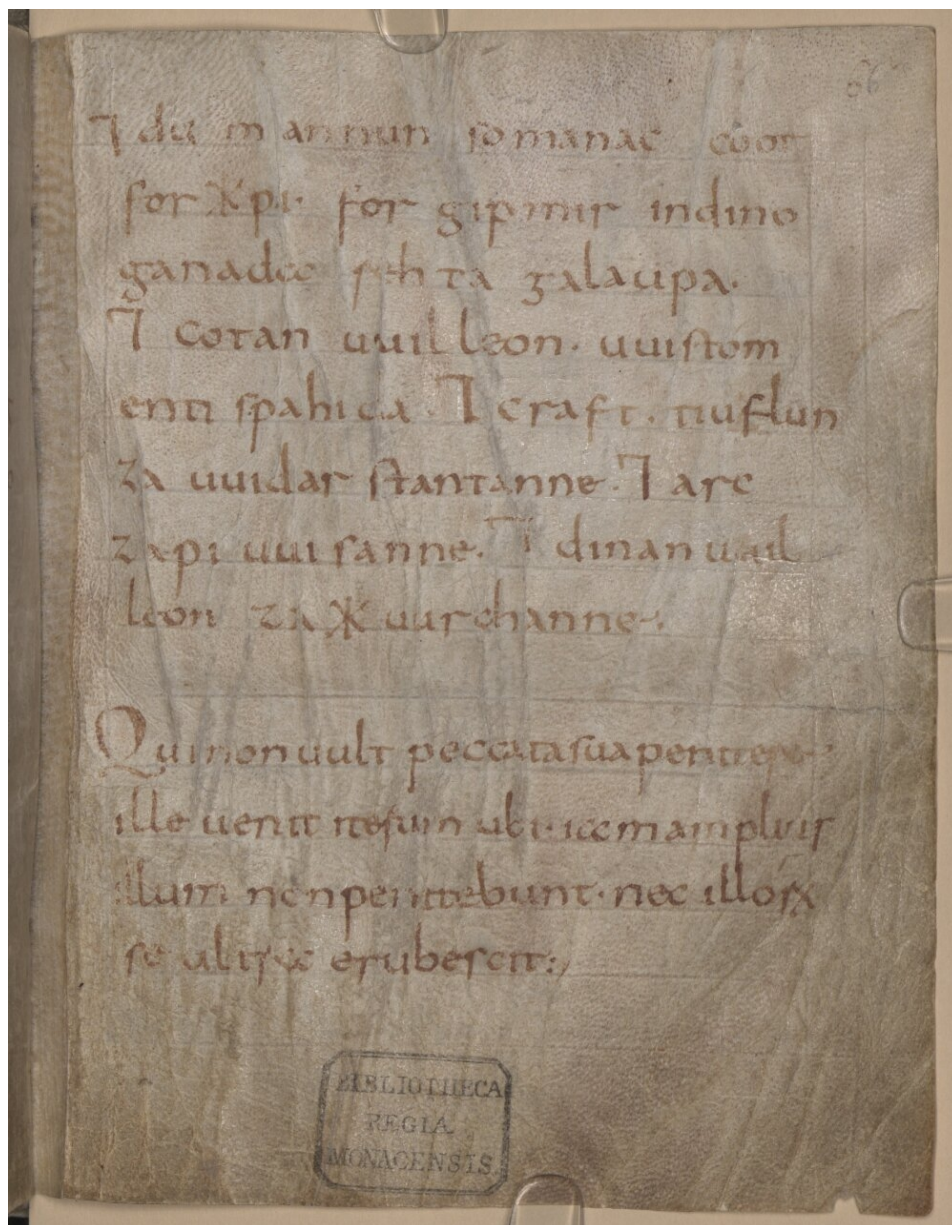 ⁊ du mannun so manac coot
for ᚼpi· for gipmir indino
ganada rehta galaupa·
⁊ cotan uuilleon· uuistom
enti spahida· ⁊ craft· tiuflun
za uuidar stantanne· ⁊ arc
za pi uuisanne· ⁊ dinan uuil
leon za ᚼ uurchanne·
Qui non uult peccata sua penitere
ille uenit iterum ubi· iam amplius
illum non penitebunt· nec illorꝝ
se ultra erubescit:,
BIBLIOTHECA
REGIA
MONACENSIS